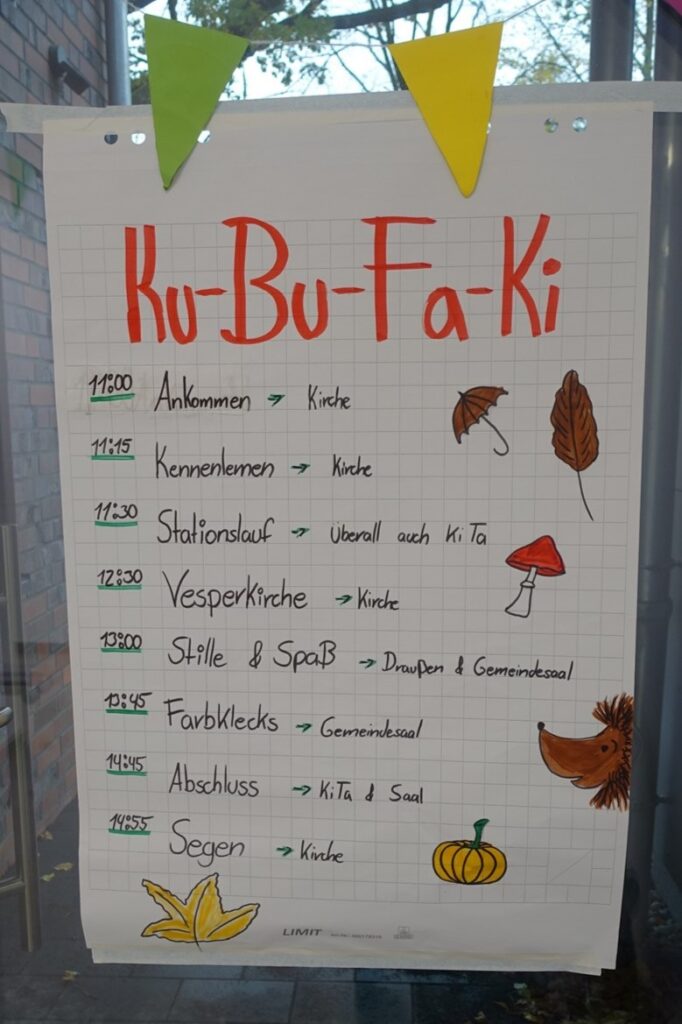 Ku-Bu-Fa-Ki
11:00 Ankommen → Kirche
11:15 Kennenlernen → Kirche
11:30 Stationslauf → Überall auch KiTa
12:30 Vesperkirche → Kirche
13:00 Stille & Spaß → Draußen & Gemeindesaal
13:45 Farbklecks → Gemeindesaal
14:45 Abschluss → KiTa & Saal
14:55 Segen → Kirche
LIMIT